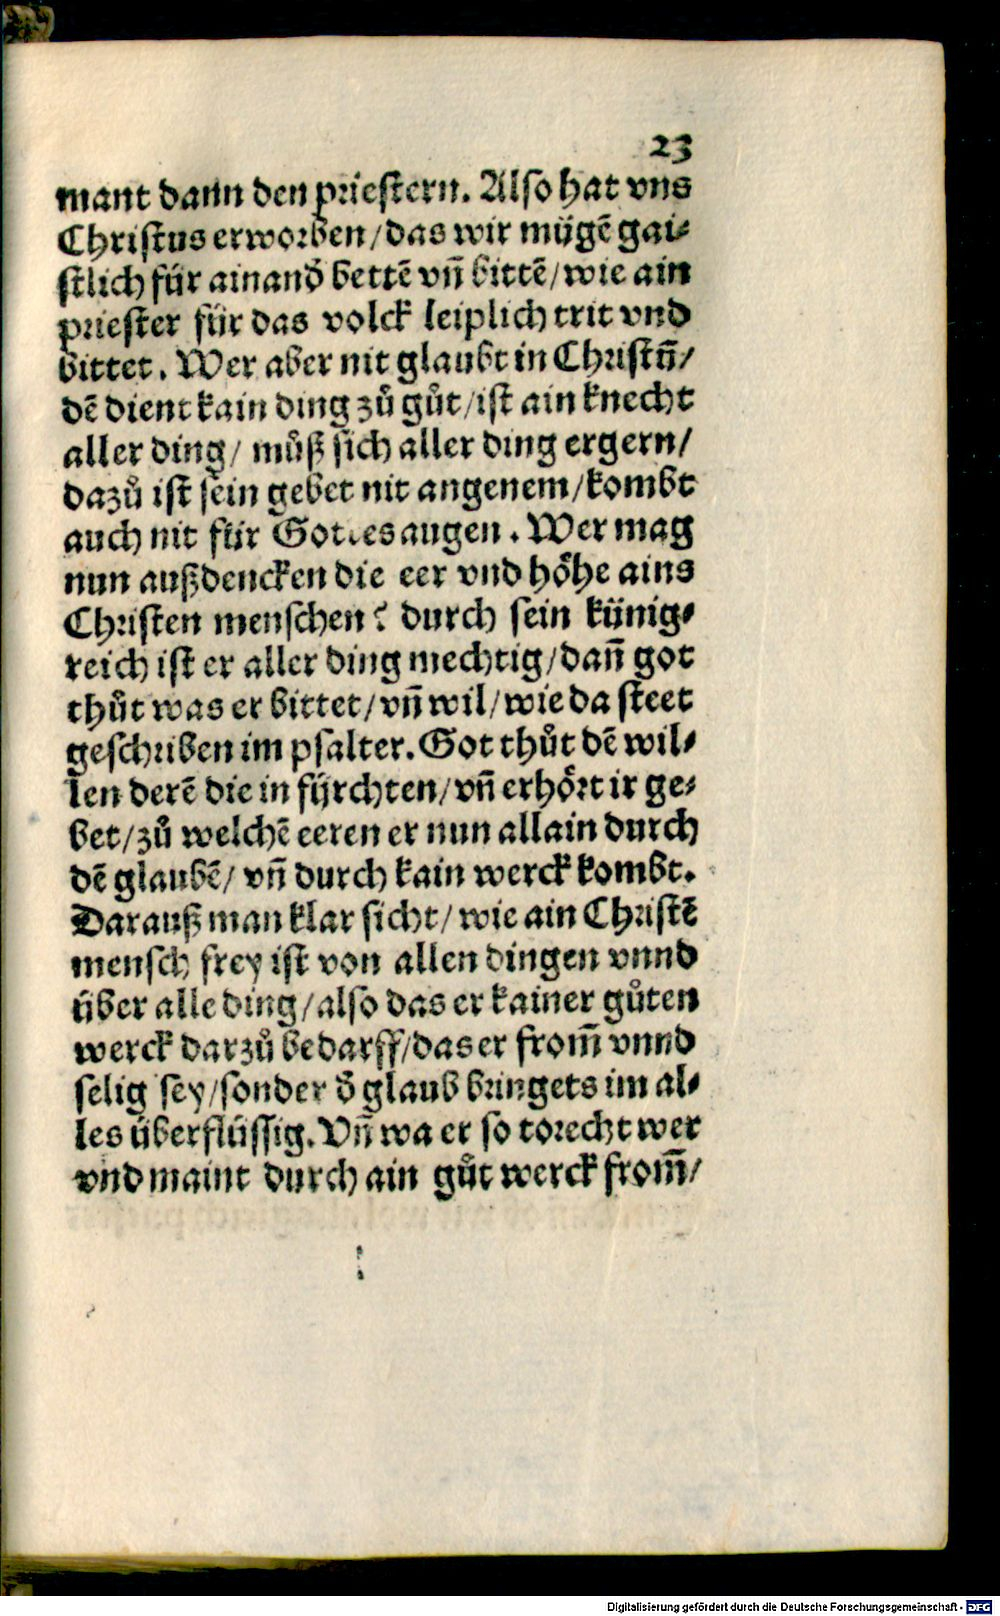 23
mant dann den priestern. Also hat vns
Christus erworben/das wir mügē gai⸗
stlich für ainand̄ bettē vn̄ bittē/wie ain
priester für das volck leiplich trit vnd
bittet. Wer aber nit glaubt in Christū/
dē dient kain ding zů gůt/ist ain knecht
aller ding/ můß sich aller ding ergern/
dazů ist sein gebet nit angenem/kombt
auch nit für Gottes augen. Wer mag
nun außdencken die eer vnd höhe ains
Christen menschen? durch sein künig⸗
reich ist er aller ding mechtig/dan̄ got
thůt was er bittet/vn̄ wil/wie da steet
geschriben im psalter. Got thůt dē wil⸗
len derē die in fürchten/vn̄ erhört ir ge⸗
bet/zů welchē eeren er nun allain durch
dē glaubē/ vn̄ durch kain werck kombt.
Darauß man klar sicht/wie ain Christē
mensch frey ist von allen dingen vnnd
über alle ding/also das er kainer gůten
werck darzů bedarff/das er from̄ vnnd
selig sey/sonder d̄ glaub bringets im al⸗
les überflüssig. Vn̄ wa er so torecht wer
vnd maint durch ain gůt werck from̄/
Digitalisierung gefördert durch die Deutsche Forschungsgemeinschaft - DFG